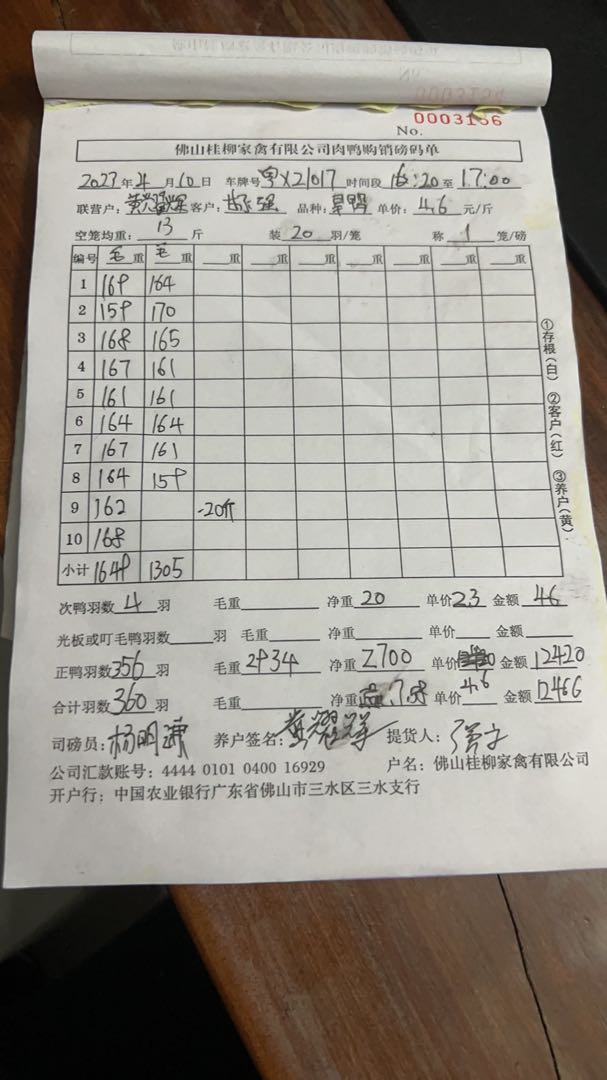 0003156
No.
佛山桂柳家禽有限公司肉鸭购销磅码单
2023年4月10日 车牌号 粤X21017 时间段 16:20至17:00
联营户: 黄耀辉 客户: 强 品种: 单价: 4.6 元/斤
空笼均重: 13 斤 装 20 羽/笼 称 1 笼/磅
编号 毛重 毛重 重 重 重 重 重 重
1 169 164
2 159 170
3 168 165
4 167 161
5 161 161
6 164 164
7 167 161
8 164 159
9 162 -20斤
10 168
小计 1649 1305
①存根(白) ②客户(红) ③养户(黄).
次鸭羽数 4 羽 毛重 净重 20 单价 2.3 金额 46
光板或叮毛鸭羽数 羽 毛重 净重 单价 金额
正鸭羽数 356 羽 毛重 2934 净重 2700 单价 金额 12420
合计羽数 360 羽 毛重 净重 7.58 单价 4.6 金额 12466
司磅员: 杨明 养户签名: 黄耀 提货人:
公司汇款账号: 4444 0101 0400 16929 户名: 佛山桂柳家禽有限公司
开户行: 中国农业银行广东省佛山市三水区三水支行